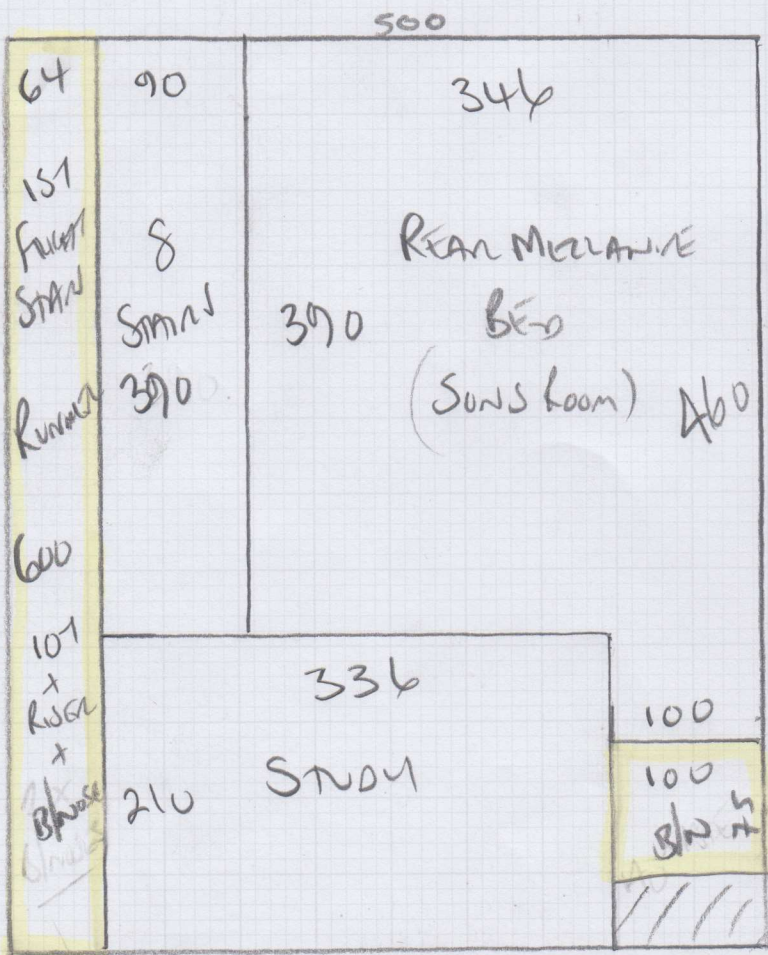 500
64
1ST
FLIGHT
STAIR
RUNNER
600
10T
+
RISER
+
B/NOSE
90
8
STAIRS
390
346
REAR MEZZANINE
BED
(SONS ROOM)
390
460
336
STUDY
210
100
100
B/N